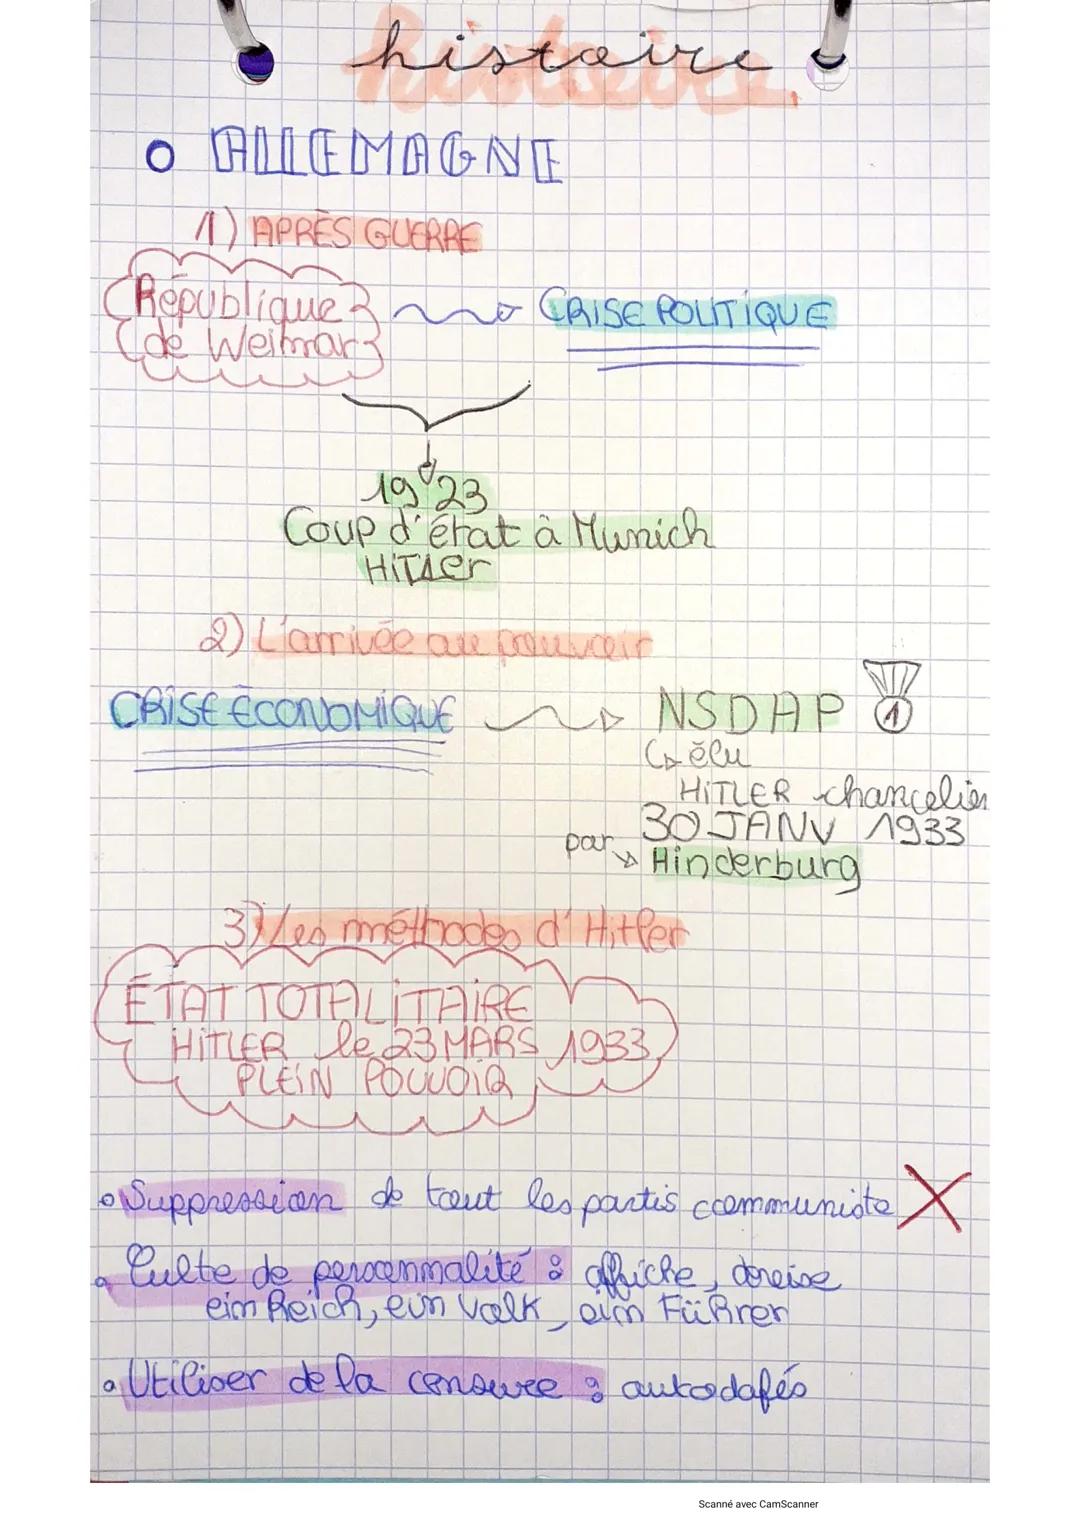 histoire
ALLEMAGNE
1) APRÈS GUERRE
République
de Weimar
CRISE POLITIQUE
1923
Coup d'état à Munich
HITLER
2) L'arrivée au pouvoir
CRISE ÉCONOMIQUE
NSDAP 1
élu
HITLER chancelier
30 JANV 1933
par Hinderburg
3) Les méthodes d'Hitler
ÉTAT TOTALITAIRE
HITLER le 23 MARS 1933
PLEIN POUVOIR
Suppression de tout les partis communiste
Culte de personnalité : affiche,
ein Reich, ein Volk, ein Führer
Utiliser de la censure : autodafés
Scanné avec CamScanner